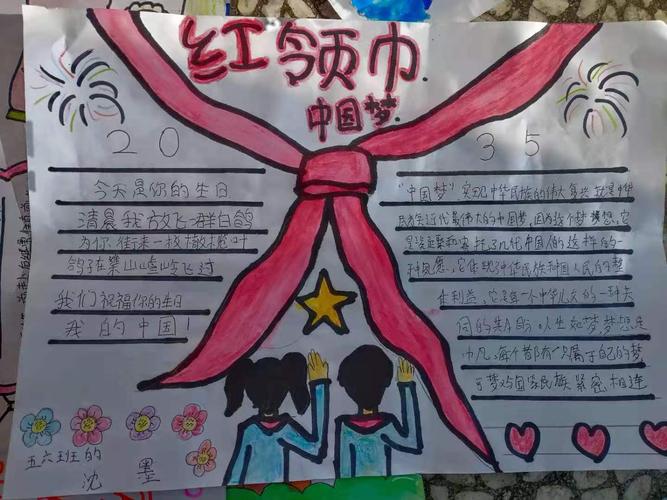 红领巾
中国梦
20 35
今天是你的生日
清晨我放飞一群白鸽
为你衔来一枚橄榄叶
鸽子在崇山峻岭飞过
我们祝福你的生日
我的中国!
"中国梦"实现中华民族的伟大复兴,就是中华
民族近代最伟大的中国梦,因为这个梦想,它
是凝聚和寄托了几代中国人的这样的一
种夙愿,它体现了中华民族和中国人民的整
体利益,它是每一个中华儿女的一种共
同的 人生如梦梦想是
凡,每个都有一只属于自己的梦
可梦 国家民族紧密相连
五六班的
沈 墨